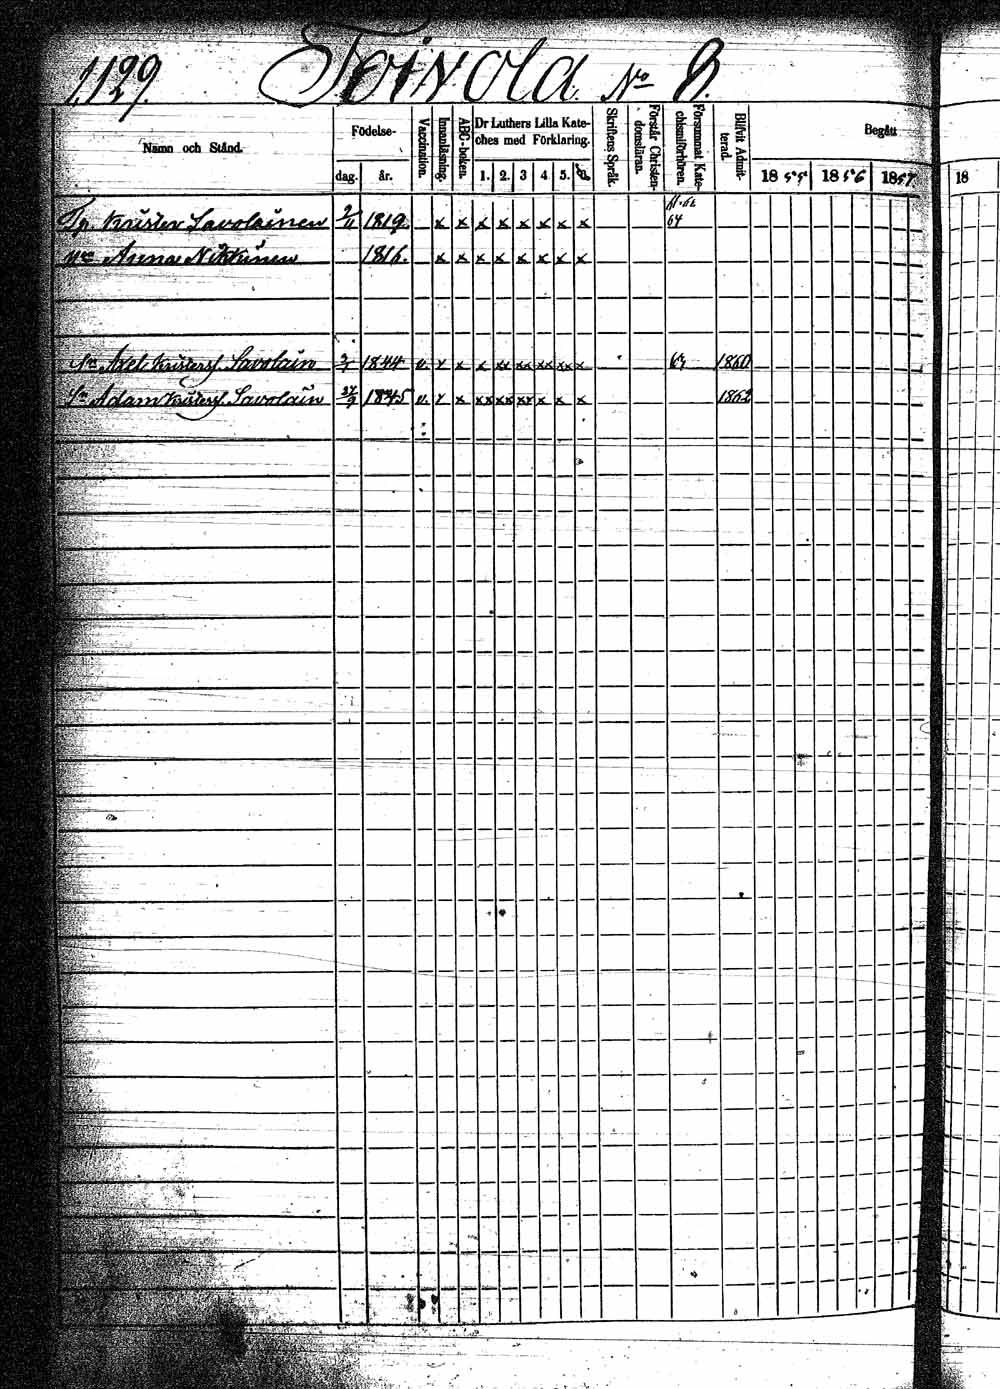 1,129. Toivola. No 8.
Namn och Stånd.
Födelse-
dag. år.
Vaccination.
Innanläsning.
ABC-boken.
Dr Luthers Lilla Kate-
ches med Förklaring.
1. 2. 3 4. 5.
Skriftens Språk.
Förstår Christen-
domsläran.
Försummat Kate-
chismiförhören.
Blifvit Admit-
terad.
Begått
18 55 18 56 1857. 18
Krister Savolainen 1819. x x x x x x x x 64
Anna Nikkinen 1816. x x x x x x x x
Axel Kristerss. Savolain 1844 v. x x x xx xx xx xx x 1860
Sn Adam Kristerss. Savolain 27/9 1845 v. x x xx xx xx x x x 1862